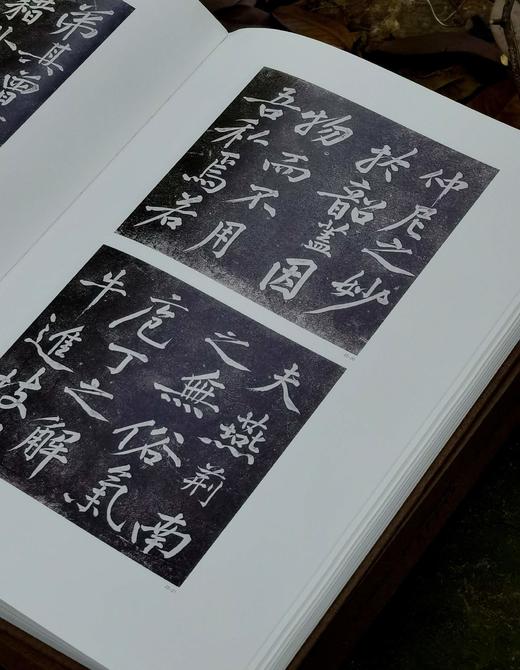 弟其曾
籍
仲尼之妙
於韶蓋因
物而不用
吾私焉若
夫燕荊南
之無俗氣
庖丁之解
牛進技